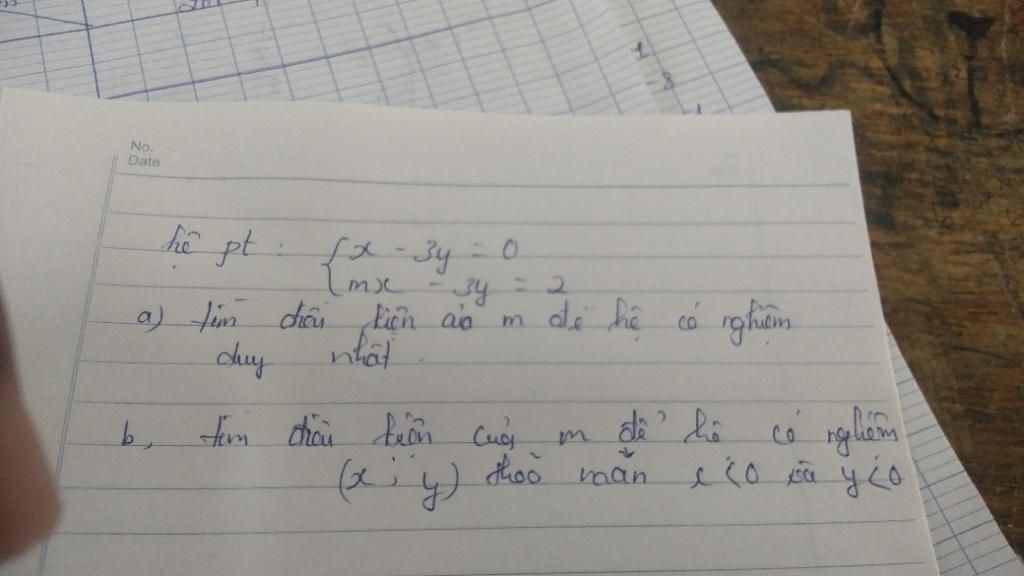 No.
Date
hệ pt : { x - 3y = 0
mx - 3y = 2
a) tìm điều kiện của m để hệ có nghiệm
duy nhất.
b, tìm điều kiện của m để hệ có nghiệm
(x ; y) thoả mãn x < 0 và y < 0
1
3